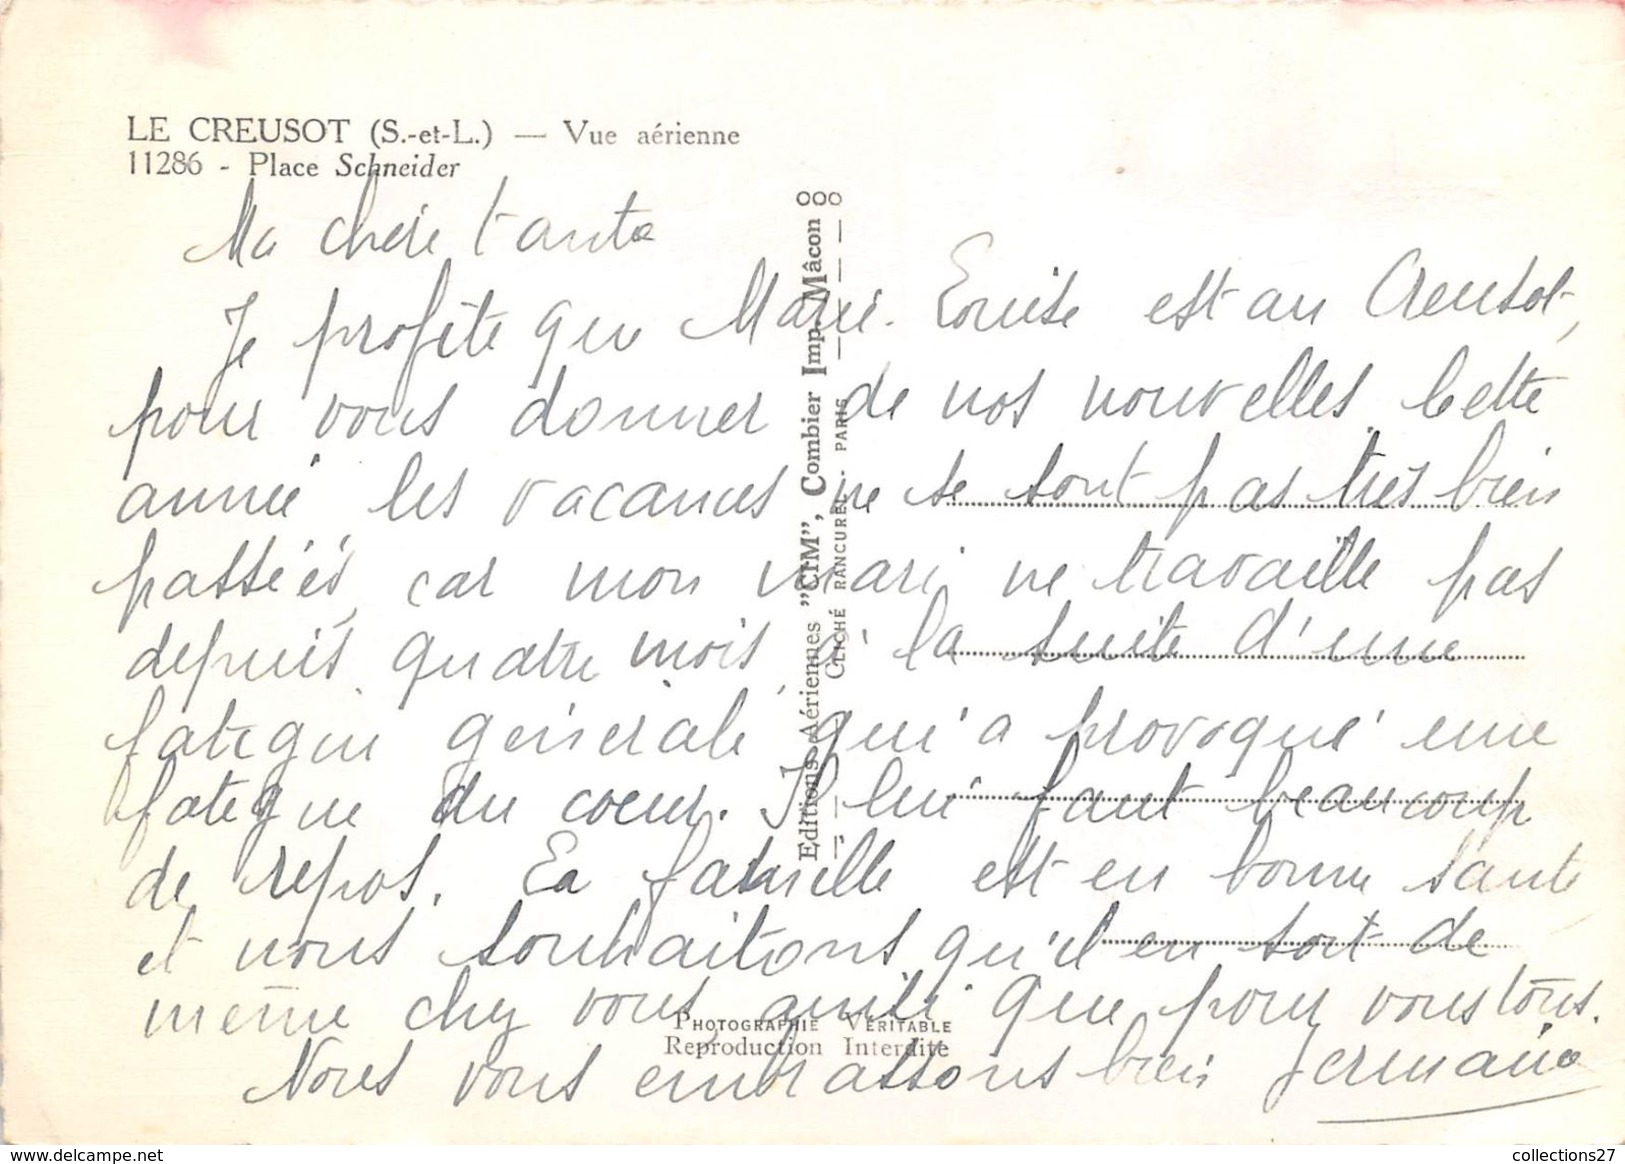 LE CREUSOT (S.-et-L.) — Vue aérienne
11286 - Place Schneider
Ma chère tante
Je profite que Marie-Louise est au Creusot,
pour vous donner de nos nouvelles. Cette
année les vacances ne se sont pas très bien
passéés, car mon mari ne travaille pas
depuis quatre mois, à la suite d'une
fatigue générale qui a provoqué une
fatigue du coeur. Il lui faut beaucoup
de repos. La famille est en bonne santé
et nous souhaitons qu'il en soit de
même chez vous que pour vous tous.
Nous vous embrassons bien Germaine
Editions Aériennes "CIM", Combier Imp. Mâcon
CLICHÉ RANCUREL - PARIS
PHOTOGRAPHIE VÉRITABLE
Reproduction Interdite
www.delcampe.net
collections27